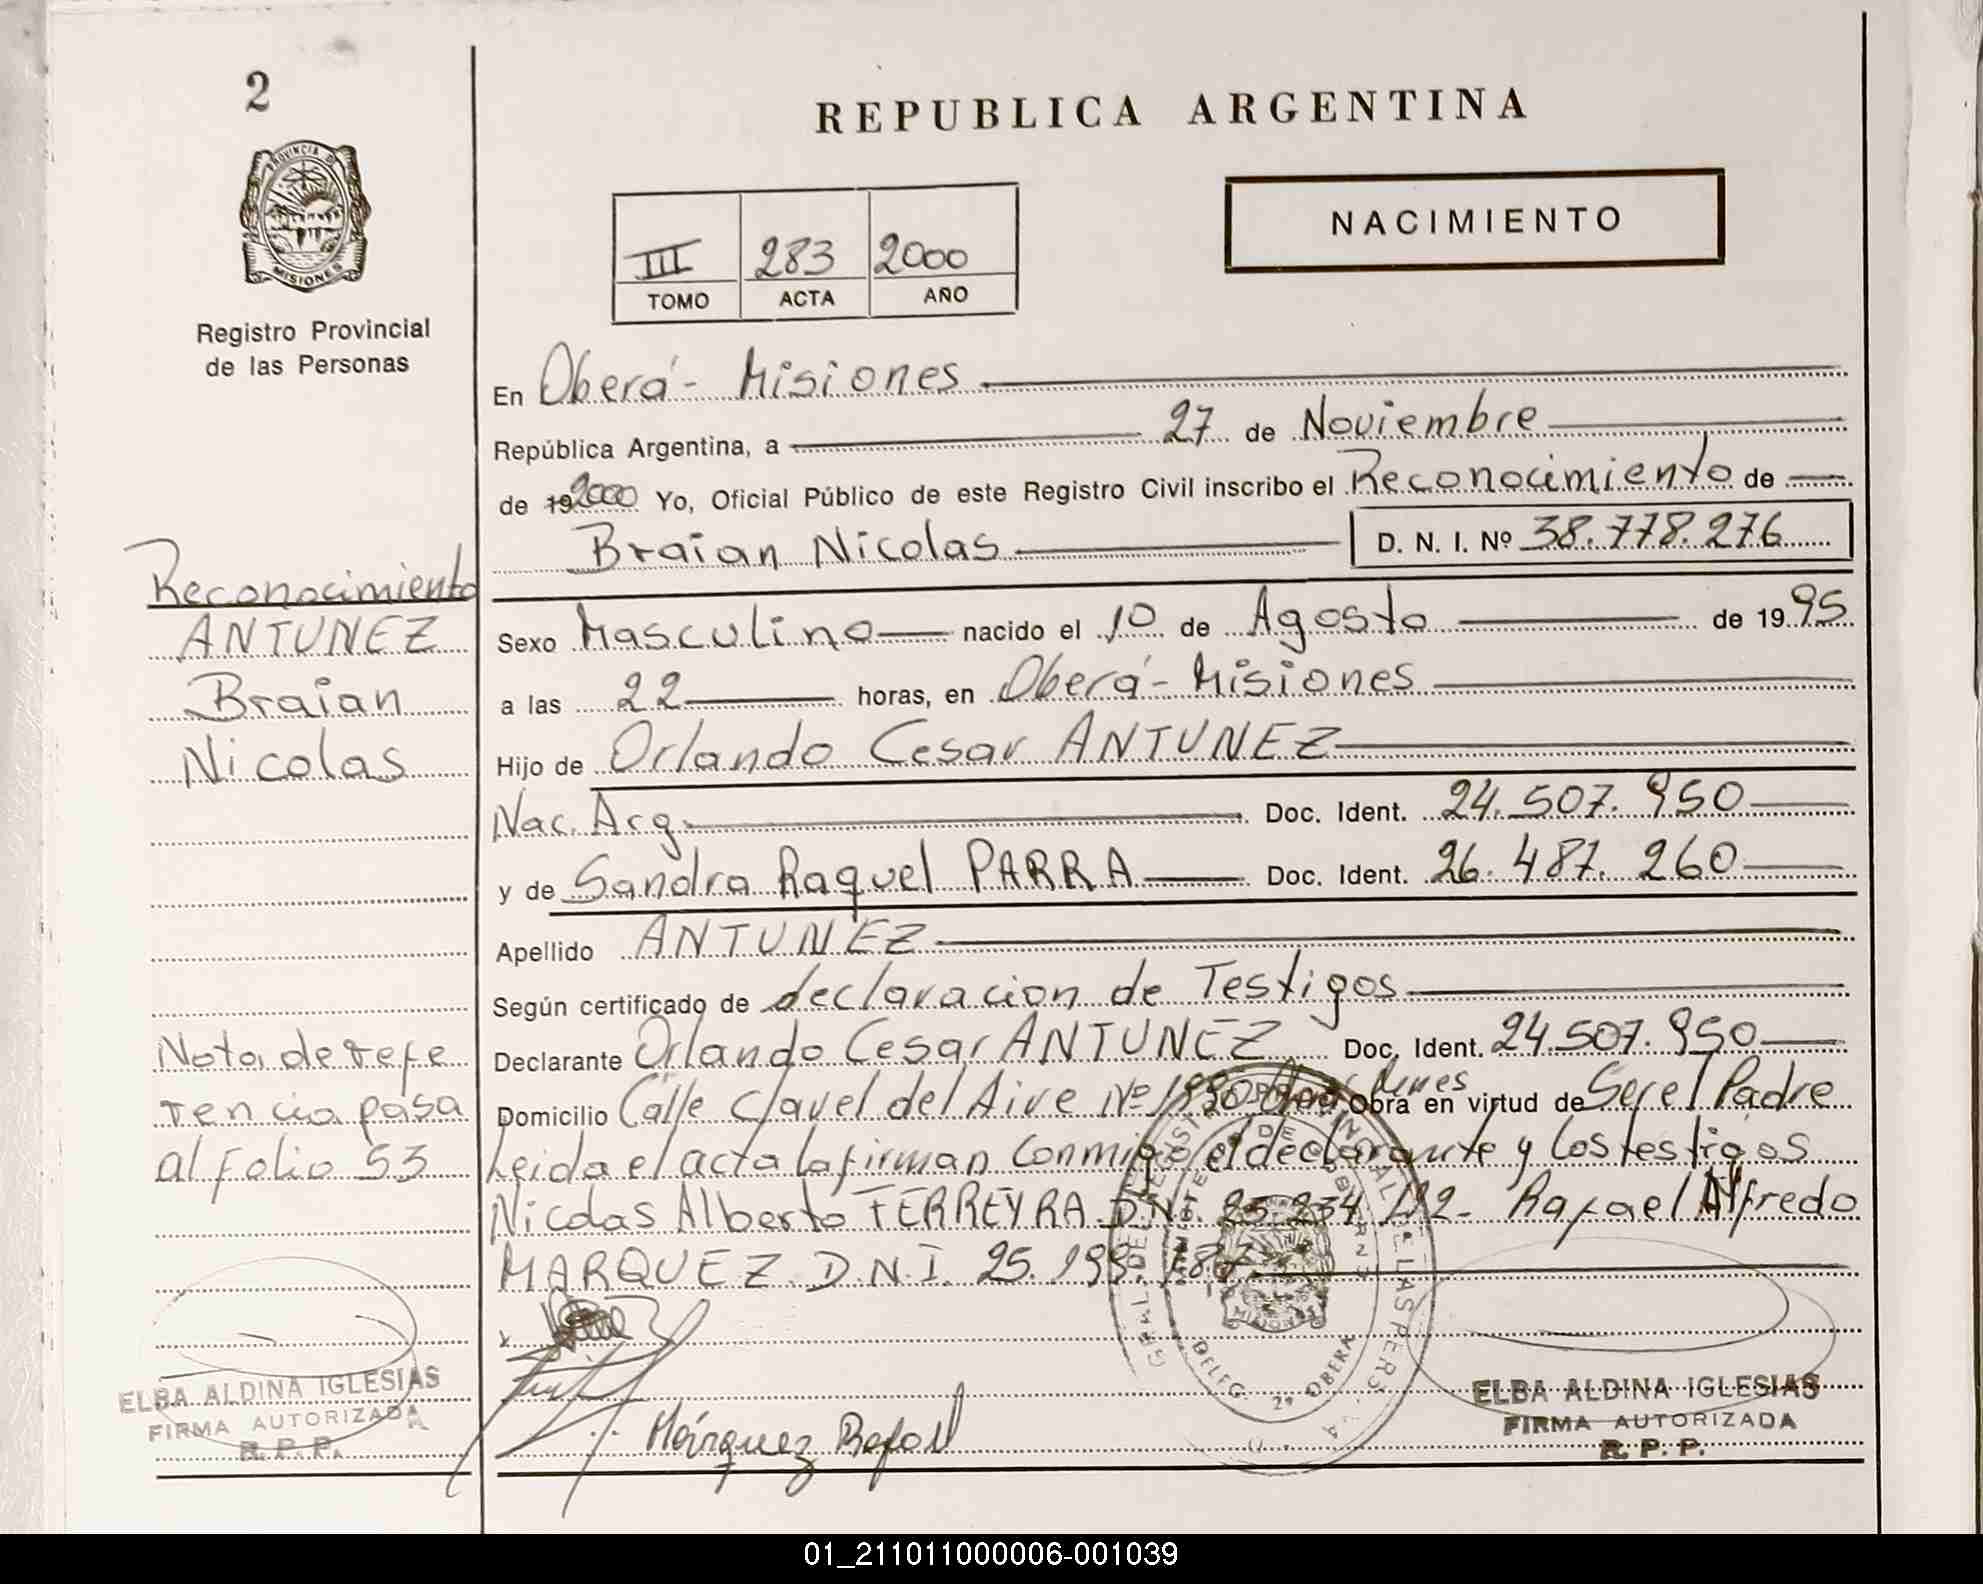 2
REPUBLICA ARGENTINA
PROVINCIA DE
MISIONES
Registro Provincial
de las Personas
NACIMIENTO
III 283 2000
TOMO ACTA AÑO
En Oberá - Misiones
República Argentina, a 27 de Noviembre
de 192000 Yo, Oficial Público de este Registro Civil inscribo el Reconocimiento de
Braian Nicolas D. N. I. Nº 38.778.276
Sexo Masculino nacido el 10 de Agosto de 1995
a las 22 horas, en Oberá - Misiones
Hijo de Orlando Cesar ANTUNEZ
Nac. Arg. Doc. Ident. 24.507.950
y de Sandra Raquel PARRA Doc. Ident. 26.487.260
Apellido ANTUNEZ
Según certificado de declaracion de Testigos
Declarante Orlando Cesar ANTUNEZ Doc. Ident. 24.507.950
Domicilio Calle Clavel del Aire Nº 1990 Obra en virtud de Ser el Padre
Leida el acta la firman conmigo el declarante y los testigos
Nicolas Alberto FERREYRA D.N.I. 25.234. Rafael Alfredo
MARQUEZ D.N.I. 25.199.187
Márquez Rafael
Reconocimiento
ANTUNEZ
Braian
Nicolas
Nota de refe
rencia pasa
al folio 53
ELBA ALDINA IGLESIAS
FIRMA AUTORIZADA
R. P. P.
DELEG. 2ª OBERA
ELBA ALDINA IGLESIAS
FIRMA AUTORIZADA
R. P. P.
01_211011000006-001039